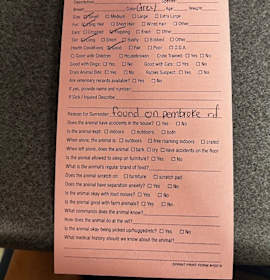 Description:
Breed: Color: Grey Age: Weight:
Size: Small ☐ Medium ☐ Large ☐ Extra Large
☐ Short Hair ☐ Wire Hair ☐ Other
Ears: ☐ Cropped ☐ Erect ☐ Other
☐ Short ☐ Bushy ☐ Bobbed ☐ Other
Health Condition: Good ☐ Fair ☐ Poor ☐ D.O.A.
☐ Good with Children ☐ Housebroken Crate Trained: ☐ Yes ☐ No
Good with Dogs: ☐ Yes ☐ No Good with Cats: ☐ Yes ☐ No
Does Animal Bite: ☐ Yes ☐ No Rabies Suspect: ☐ Yes ☐ No
Are veterinary records available? ☐ Yes ☐ No
If yes, provide name and number:
If Sick / Injured Describe:
Reason for Surrender: found on pembroke rd
Does the animal have accidents in the house? ☐ Yes ☐ No
Is the animal kept ☐ indoors ☐ outdoors ☐ both
When alone, the animal is: ☐ outdoors ☐ free roaming indoors ☐ crated
When left alone, does the animal ☐ bark ☐ cry ☐ have accidents on the floor
Is the animal allowed to sleep on furniture? ☐ Yes ☐ No
What is the animal's regular brand of food?
Does the animal scratch on ☐ furniture ☐ scratch post
Does the animal have separation anxiety? ☐ Yes ☐ No
Is the animal okay with loud noises? ☐ Yes ☐ No
Is the animal good with farm animals? ☐ Yes ☐ No
What commands does the animal know?
How does the animal do at the vet?
Is the animal okay being picked up/hugged/etc? ☐ Yes ☐ No
What medical history should we know about the animal?